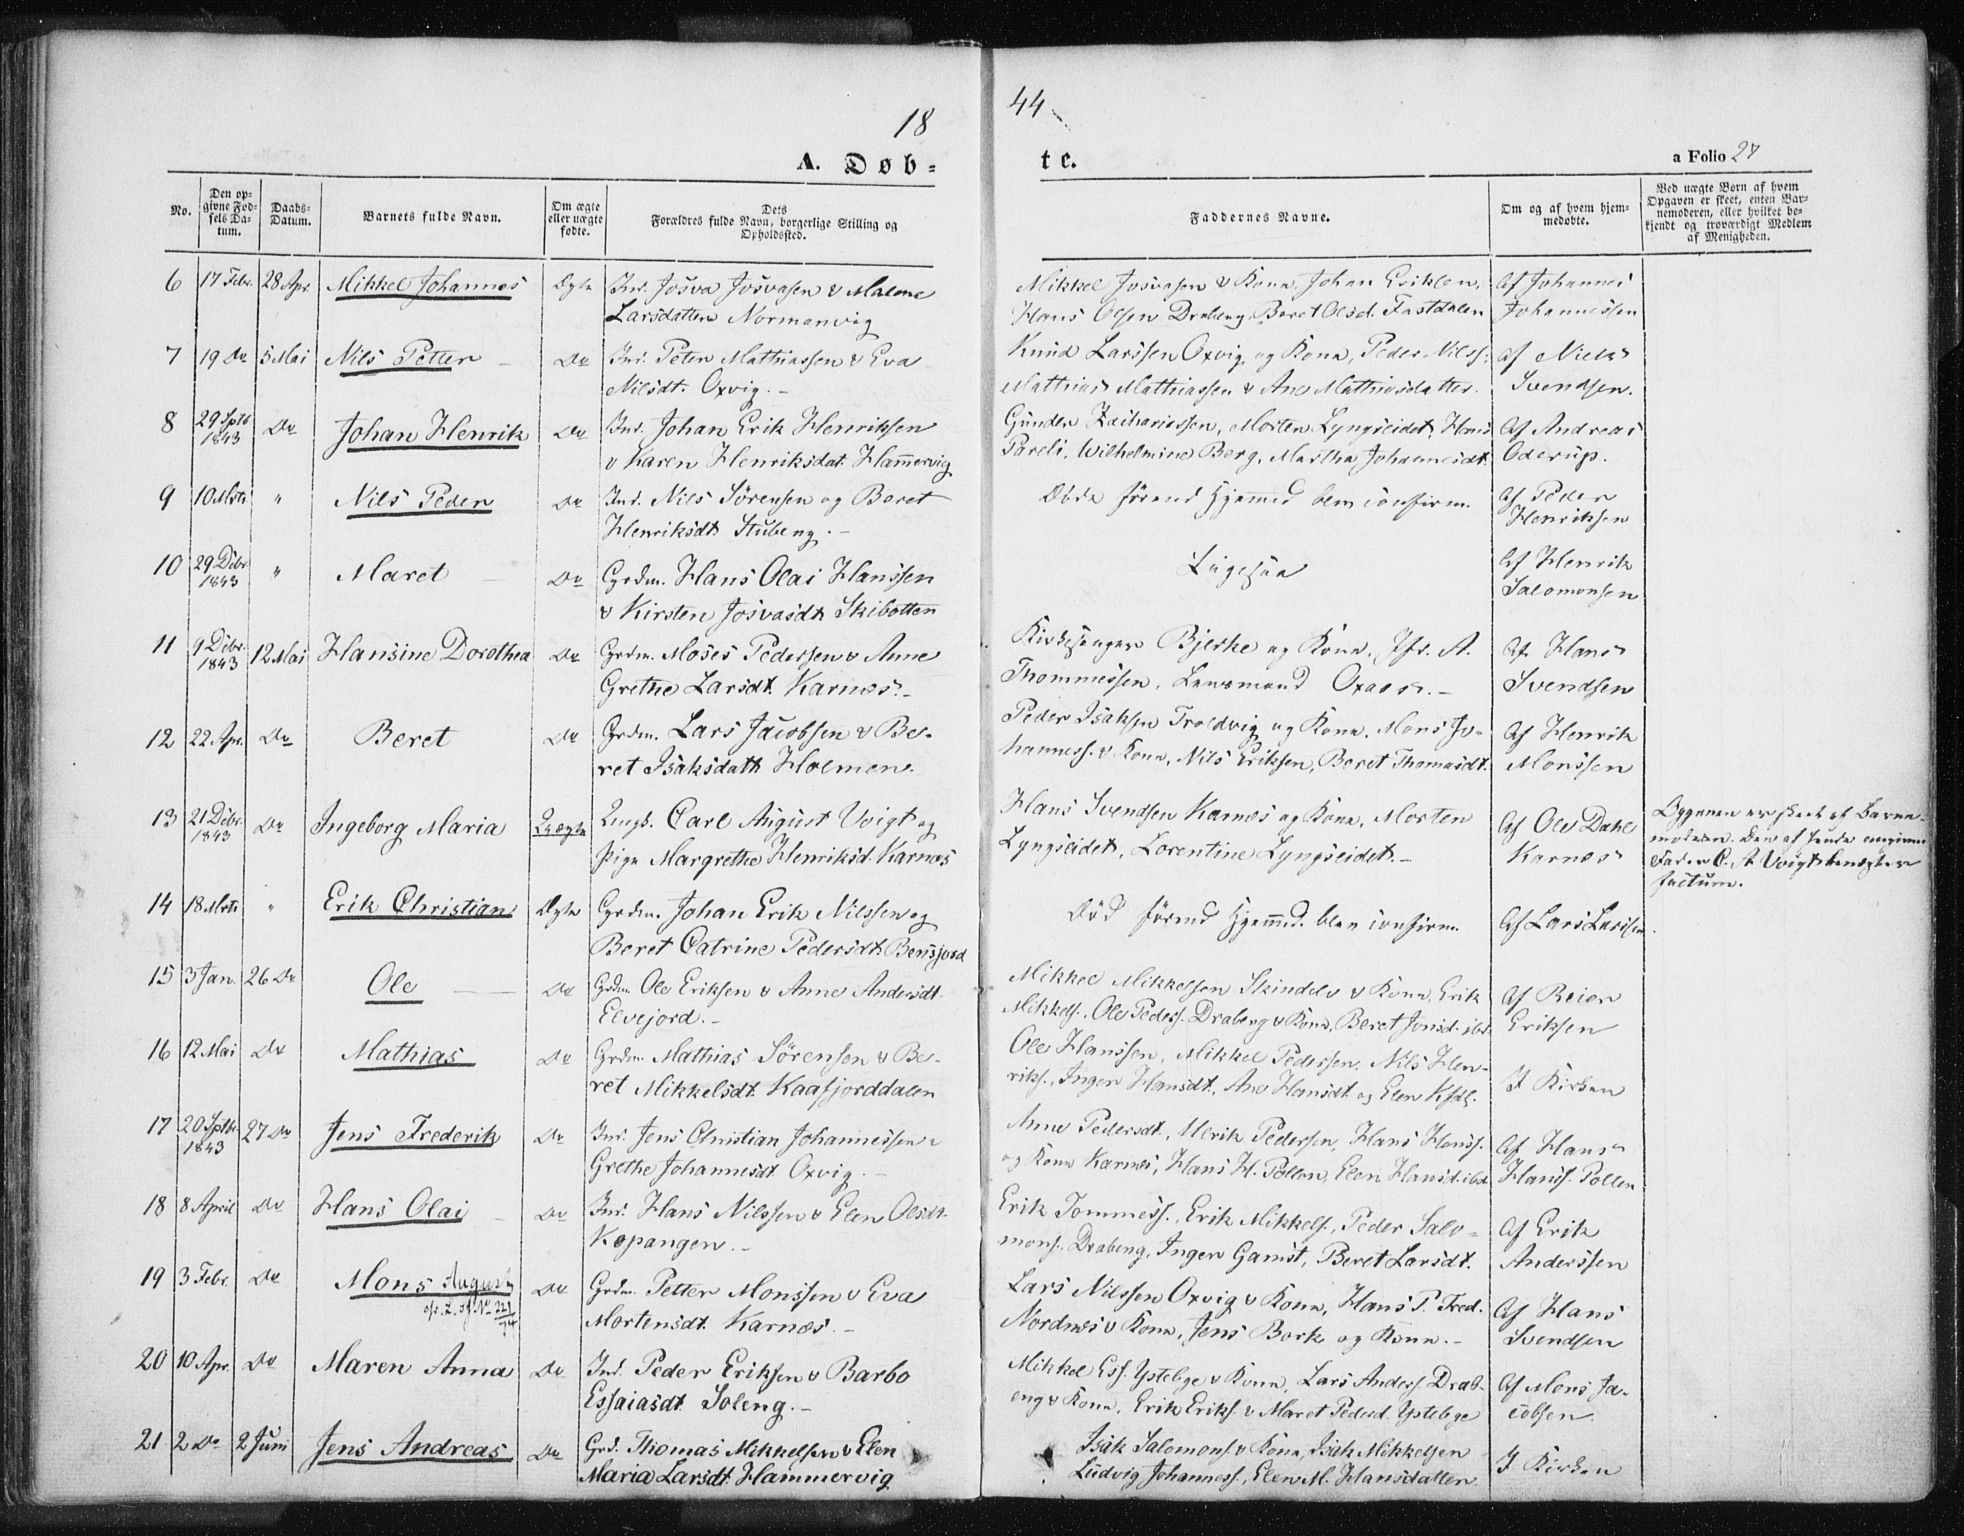 18
44
A. Døb-
te.
a Folio 27
No.
Den opgivne Fødsels Datum.
Daabs-Datum.
Barnets fulde Navn.
Om ægte eller uægte fødte.
Dets Forældres fulde Navn, borgerlige Stilling og Opholdssted.
Faddernes Navne.
Om og af hvem hjemmedøbte.
Ved uægte Børn af hvem Opgaven er skeet, enten Barnemoderen, eller hvilket bekjendt og troværdigt Medlem af Menigheden.
6 17 Febr. 28 Apr. Mikkel Johannes Ægte Ind. Josva Josvasen & Malene
Larsdatter Normanvig
Mikkel Josvasen & Kone, Johan Eriksen,
Hans Olsen Drabeng, Beret Olsd. Fastdalen
Af Johannes
Johannessen
7 19 Do 5 Mai Nils Petter Do Ind. Peter Mathiassen & Eva
Nilsdt. Oxvig.
Knud Larssen Oxvig og Kone, Peder Nilss.
Mathias Mathiassen & Ane Mathiasdatter.
Af Niels
Svendsen.
8 29 Sptb 1843 Do Johan Henrik Do Ind. Johan Erik Henriksen
& Karen Henriksdat. Hamervig
Gunder Zachariassen, Morten Lyngseidet, Hans
Pareli, Wilhelmine Berg, Martha Johannesdt.
Af Andreas
Oderup.
9 10 Mrts " Nils Peder Do Ind. Nils Sørensen og Beret
Henriksdt. Stubeng.
Døde førend Hjemmed. blev confirm.
Af Peder
Henriksen
10 29 Debr 1843 " Maret Do Grdm. Hans Olai Hanssen
& Kirsten Josvasdt. Skibotten
Ligesaa
Af Henrik
Salomonsen
11 9 Debr. 1843 12 Mai Hansine Dorothea Do Grdm. Moses Pedersen & Anne
Grethe Larsdt. Karnæs.
Kirkesanger Bjerke og Kone, Jfr. A.
Thommessen, Lensmand Oxaas.
Af Hans
Svendsen
12 22 Apr. Do Beret Do Grdm. Lars Jacobsen & Be-
ret Isaksdatt. Holmen.
Peder Isaksen Troldvig og Kone, Mons Jo-
hanness. & Kone, Nils Eriksen, Beret Thomasdt.
Af Henrik
Monssen
13 21 Debr. 1843 Do Ingeborg Maria Uægte Ungk. Carl August Voigt og
Pige Margrethe Henriksd. Karnæs
Hans Svendsen Karnæs og Kone, Morten
Lyngseidet, Lorentine Lyngseidet.
Af Ole Dahl
Karnæs
Opgaven er skeet af Barne-
moderen. Den af hende angivne
Fader C. A. Voigt benægter
factum.
14 18 Mrts " Erik Christian Ægte Grdm. Johan Erik Nilssen og
Beret Catrine Pedersdt. Bensjord
Død førend Hjemmed. blev confirm.
Af Lars Larssen.
15 3 Jan. 26 Do Ole Do Grdm. Ole Eriksen & Anne Andersdt.
Elvejord.
Mikkel Mikkelsen Skindelv & Kone, Erik
Mikkels., Ole Peders. Drabeng & Kone, Beret Jonsd. ibd.
Af Beier
Eriksen
16 12 Mai Do Mathias Do Grdm. Mathias Sørensen & Be-
ret Mikkelsdt. Kaafjorddalen
Ole Hanssen, Mikkel Pederssen, Nils Hen-
riks., Inger Hansdt., Ane Hansdt. og Elen
I Kirken
17 20 Sptbr 1843 27 Do Jens Frederik Do Ind. Jens Christian Johannessen &
Grethe Johannesdt. Oxvig.
Anne Pedersdt., Ulrik Pedersen, Hans Hanss.
og Kone Karnæs, Hans H. Pollen, Elen Hansd. ibd.
Af Hans
Hanss. Pollen
18 8 April Do Hans Olai Do Ind. Hans Nilssen & Elen Olsdt.
Kopangen.
Erik Tommess., Erik Mikkels., Peder Salo-
mons. Drabeng, Inger Gamst, Beret Larsdt.
Af Erik
Anderssen
19 3 Febr. Do Mons August Do Grdm. Petter Monssen & Eva
Mortensdt. Karnæs.
Lars Nilssen Oxvig & Kone, Hans P. Fred.
Nordnæs & Kone, Jens Bork og Kone.
Af Hans
Svendsen
20 10 Apr. Do Maren Anna Do Ind. Peder Eriksen & Barbo
Essaiasdt. Soleng.
Mikkel Ess. Ystebye & Kone, Lars Anders. Drab-
eng & Kone, Erik Eriks. & Maret Pedersd. Ystebye
Af Mons Ja-
cobsen.
21 2 Do 2 Juni Jens Andreas Do Grd. Thomas Mikkelsen & Elen
Maria Larsdt. Hammervig
Isak Salomons. & Kone, Isak Mikkelsen
Ludvig Johanness., Elen M. Hansdatter
I Kirken